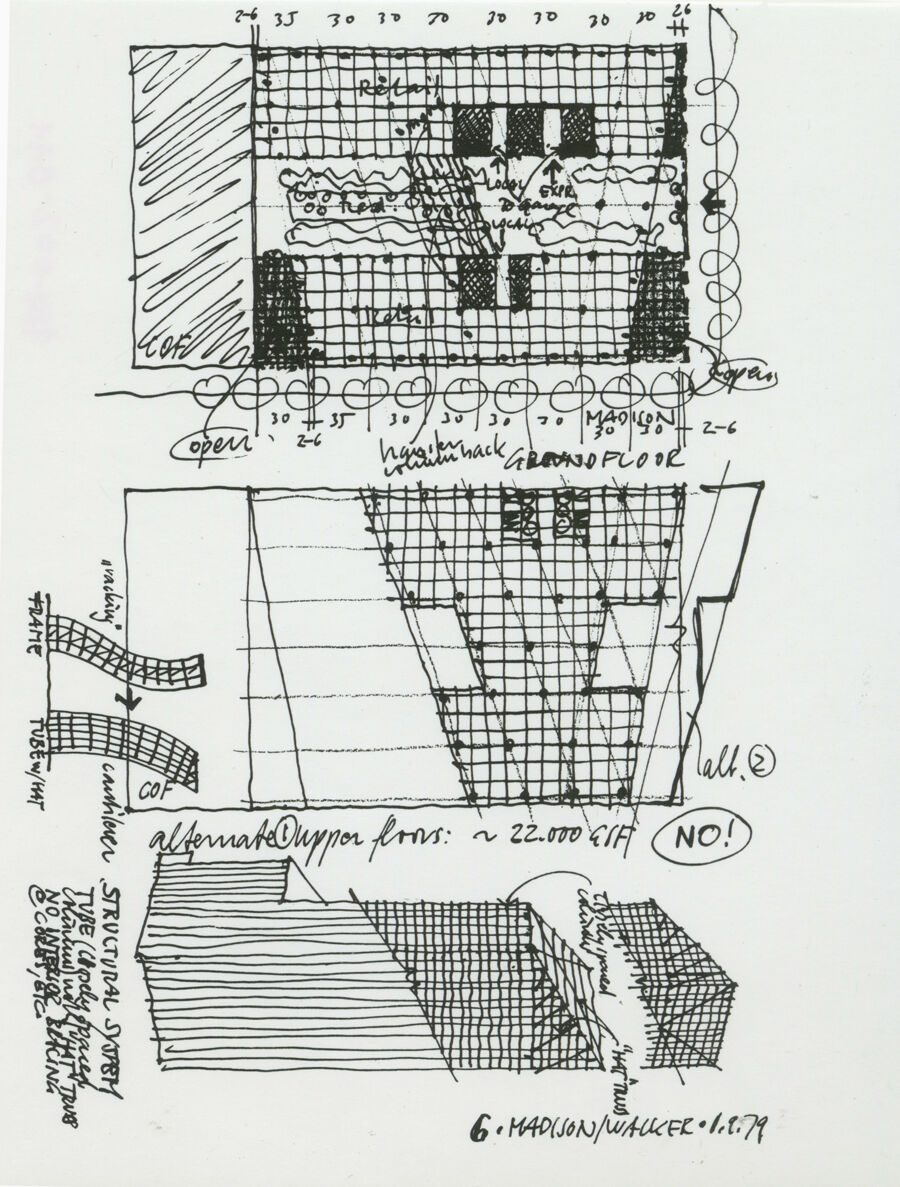 2-6 35 30 30 30 30 30 30 30 26
Retail
LOCAL
EXPR.
To garage
LOCAL
Retail
COF
open
open
30 2-6 35 30 30 30 30 30 30 2-6
MADISON
GROUNDFLOOR
"racking"
FRAME
TUBE W/HAT
cantilever
COF
alt. ②
alternate ① upper floors: ~ 22.000 GSF NO!
closely spaced
columns
"HAT" TRUSS
STRUCTURAL SYSTEM
TUBE (closely spaced
columns) w/ "HAT" TRUSS
NO INTERIOR BRACING
@ CORES, ETC.
6 • MADISON/WALKER • 1.2.79